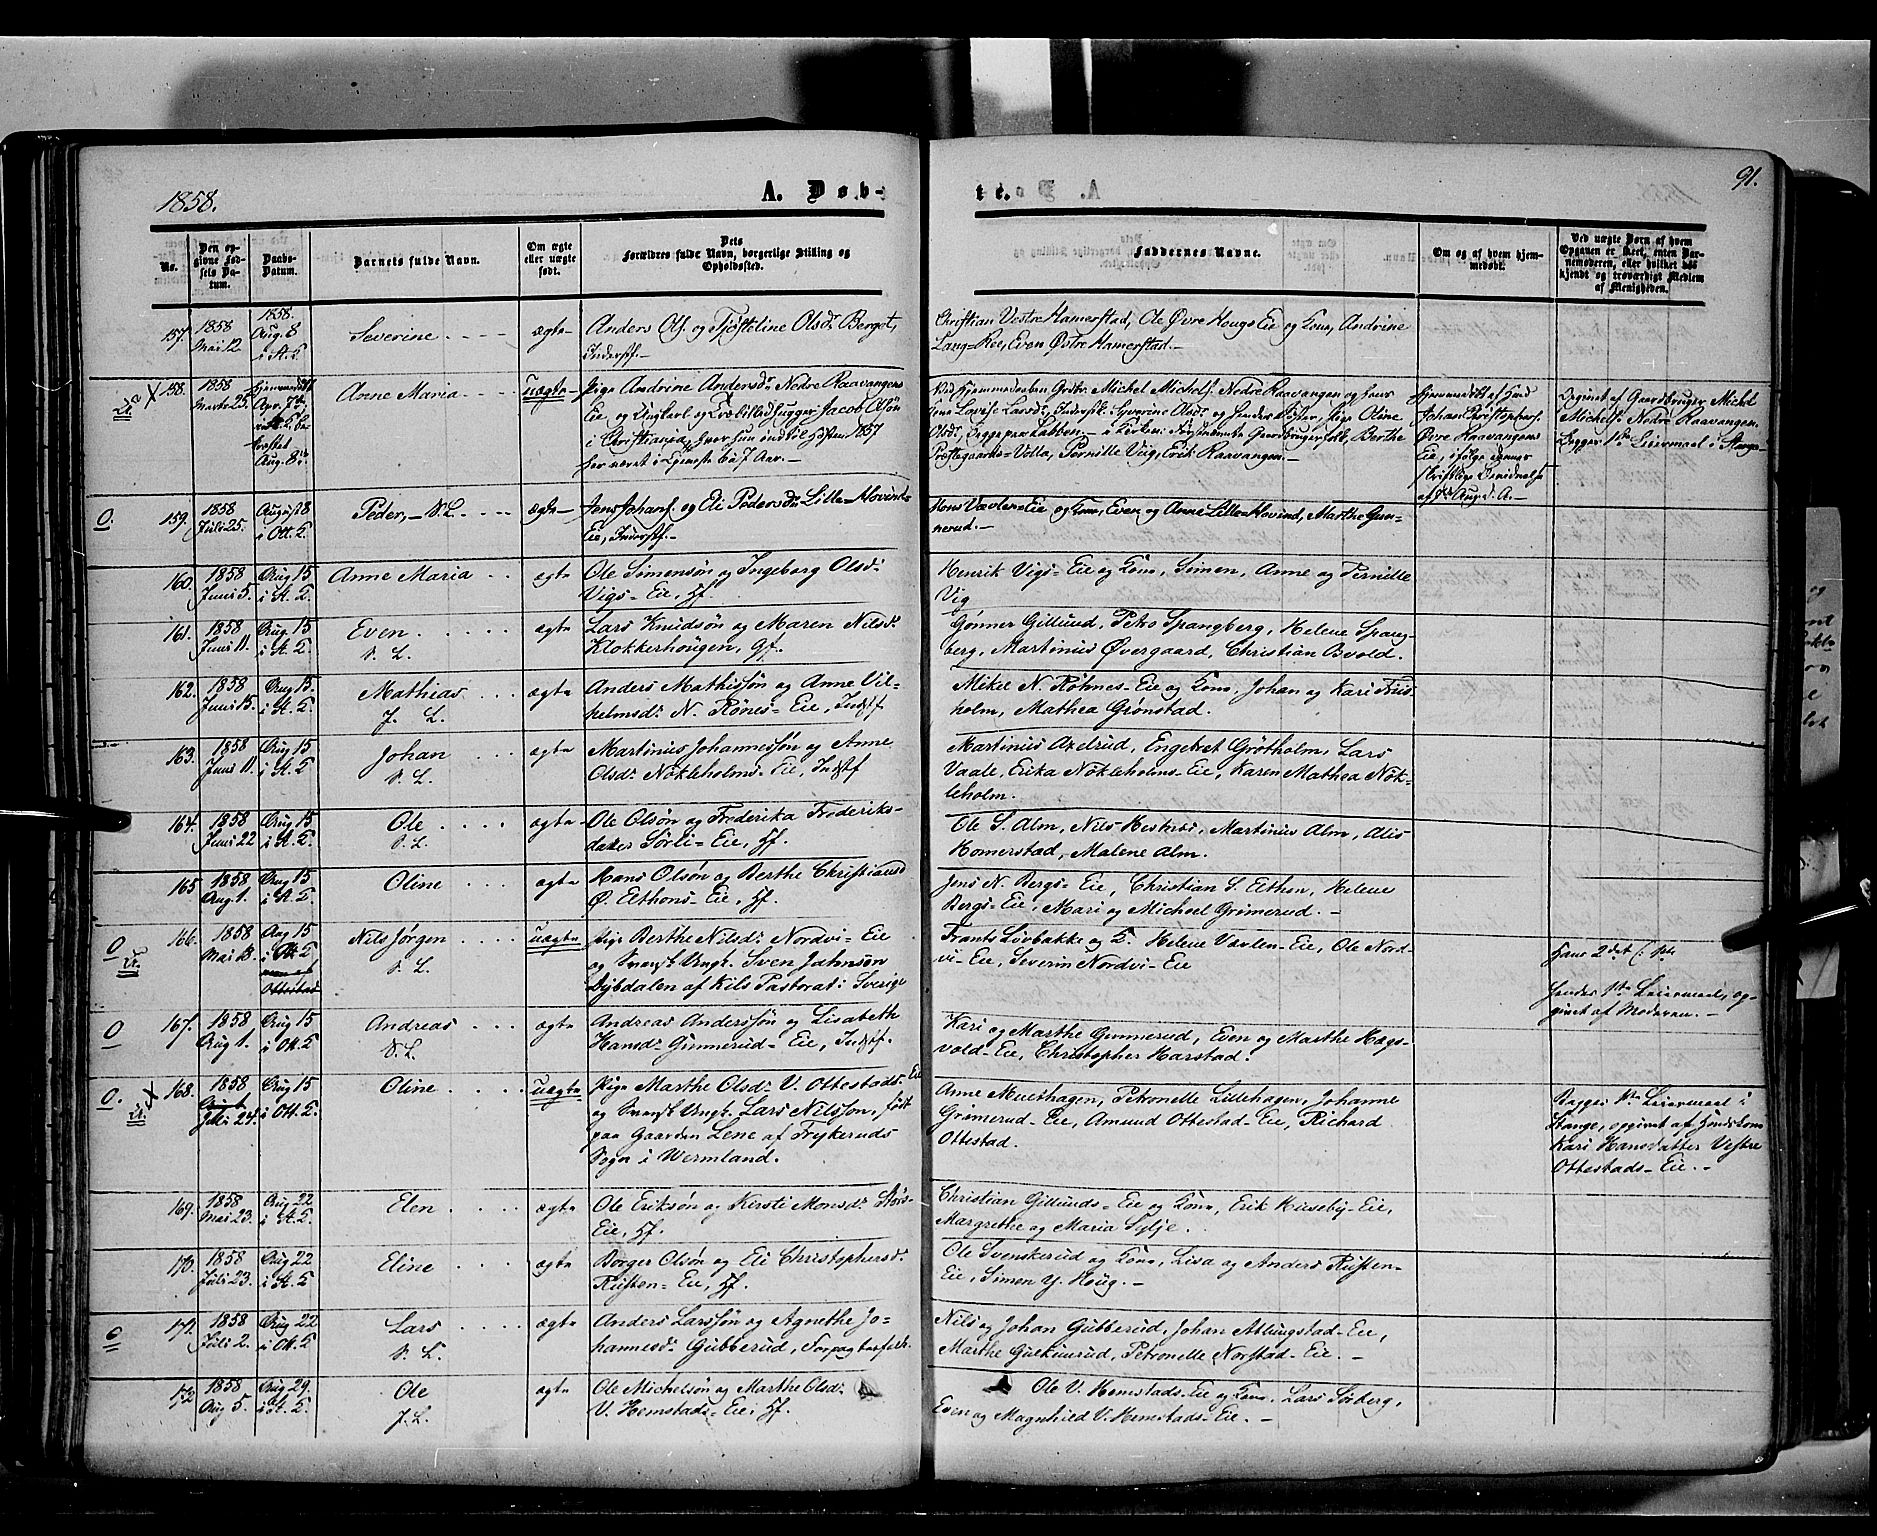 1858.
A. Døb-
te.
91.
No.
Den opgivne Fødsels Datum.
Daabs-Datum.
Barnets fulde Navn.
Om ægte eller uægte født.
Dets Forældres fulde Navn, borgerlige Stilling og Opholdssted.
Faddernes Navne.
Om og af hvem hjemmedøbt.
Ved uægte Børn af hvem Opgaven er skeet, enten Barnemoderen, eller hvilket bekjendt og troværdigt Medlem af Menigheden.
157. 1858 Mai 12 1858. Aug. 8 i St. K. Severine ægte Anders Ols. og Olsd. Berget, Inderstf.-
Christian Vestre Hamerstad, Ole Øvre Hougs Eie og Kone, Andrine
Lang-Ree, Even Østre Hamerstad.-
158. 1858 Marts 25. Aug. 8 Anne Maria uægte Pige Andrine Andersd. Nedre Raavangens
Eie og Jacob Olsøn
i Christiania, hvor hun indtil Høsten 1857
har været i Tjeneste 6 à 7 Aar.-
Præstegaards-Volla, Pernille Vig, Erik Raavangen.-
Johan Christophers.
Øvre Raavangens
Eie, ifølge dennes
skriftlige
af 7de Aug. d. A.-
Opgivet af Gaardbruger Michel
Michels. Nedre Raavangen.
Begges 1ste Leiermaal i Stange.
O. 159. 1858 Juli 25. August 8 i Ott. K. Peder, - V. L. ægte Jens Johans. og Eli Pedersd. Lille-Hovinds
Eie, Inderstf.-
Hans Vævlen-Eie og Kone, Even og Anne Lille-Hovind, Marthe Gun-
nerud.-
160. 1858 Juni 5. Aug 15 i St. K. Anne Maria ægte Ole Simensøn og Ingeborg Olsd.
Vigs-Eie, Hf.
Henrik Vigs-Eie og Kone, Simen, Anne og Pernille
Vig
161. 1858 Juni 11. Aug. 15 i St. K. Even V. L. ægte Lars Knudsøn og Maren Nilsd.
Klokkerhougen, Gf.
Gønner Gillund, Petro Spangberg, Helene Spang-
berg, Martinius Øvergaard, Christian Bvold.
162. 1858 Juni 15. Aug 15. i St. K. Mathias J. L. ægte Anders Mathissøn og Anne Vil-
helmsd. N. Rønes-Eie, Indstf
Mikel N. Røhnes-Eie og Kone, Johan og Kari Friis-
holm, Mathea Grønstad.
163. 1858 Juni 11. Aug 15 i St. K. Johan V. L. ægte Martinius Johannessøn og Anne
Olsd. Nökleholms-Eie, Indstf
Martinius Axelrud, Engebret Grötholm, Lars
Vaale, Erika Nökleholms-Eie, Karen Mathea Nök-
leholm.
164. 1858 Juni 22 Aug 15 i St. K. Ole V. L. ægte Ole Olsøn og Frederika Frederiks-
datter Sørli-Eie, Hf.
Ole S. Alm, Nils Hestnes, Martinius Alm, Alis
Homerstad, Malene Alm.
165 1858 Aug. 1. Aug 15 i St. K Oline ægte Hans Olsøn og Berthe Christiansd
Ø. Elthons-Eie, Hf.
Jens N. Bergs-Eie, Christian S. Elthon, Helene
Bergs-Eie, Mari og Michael Grimerud.-
O 166. 1858 Mai 18. Aug 15 i Ott. K Ottestad Nils Jørgen V. L. uægte Pige Berthe Nilsd. Nordvi-Eie
og Svensk Ungk. Sven Jahnsøn
Dybdalen af Kils Pastorat i Sverige
Frants Løvbakke og K. Helene Vævlen-Eie, Ole Nord-
vi-Eie, Severin Nordvi-Eie
Hans 2det
hendes 1ste Leiermaal, op-
givet af Moderen.-
O 167. 1858 Aug 1. Aug 15 i Ott. K Andreas V. L. ægte Andreas Anderssøn og Lisabeth
Hansd. Gunnerud-Eie, Indstf.
Kari og Marthe Gunnerud, Even og Marthe Hægs-
vold-Eie, Christopher Harstad.
O. 168. 1858 Juli 24. Aug 15 i Ott. K. Oline uægte Pige Marthe Olsd. V. Ottestads-Eie
og Svensk Ungk. Lars Nilsson, født
paa Gaarden Lene af Frykeruds
Sogn i Wermland.
Anne Meuelhagen, Petronelle Lillehagen, Johanne
Grimerud-Eie, Amund Ottestad-Eie, Richard
Ottestad.
Begges 1ste Leiermaal i
Stange, opgivet af
Kari Hansdatter Vestre
Ottestads-Eie.-
169. 1858 Mai 23. Aug 22 i St. K. Elen ægte Ole Eriksøn og Kersti Monsd.
Eie, Hf.
Christian Gillunds-Eie og Kone, Erik Huseby-Eie,
Margrethe og Maria Sylje.
170. 1858 Juli 23. Aug 22 i St. K Eline ægte Borger Olsøn og Eli Christophersd.
Rusten-Eie, Hf.
Ole Svenskerud og Kone, Lisa og Anders Rusten-
Eie, Simen y. Houg.-
171. 1858 Juli 2. Aug 22 i Ott. K Lars V. L. ægte Anders Larssøn og Agnethe Jo-
hannesd. Gubberud, Forpagterfolk.
Nils og Johan Gubberud, Johan Atlungstad-Eie,
Marthe Gulkinrud, Petronelle Norstad-Eie.-
172 1858 Aug 5. Aug 29. i St. K. Ole J. L. ægte Ole Michelsøn og Marthe Olsd.
V. Hemstads-Eie, Hf.
Ole V. Hemstads-Eie og Kone, Lars Sørberg,
Even og Magnhild V. Hemstads-Eie.-